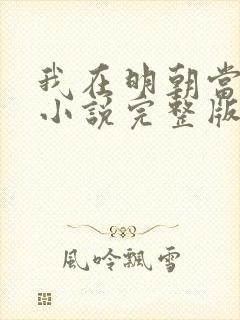 我在明朝當
小說完整版
風吟飄雪